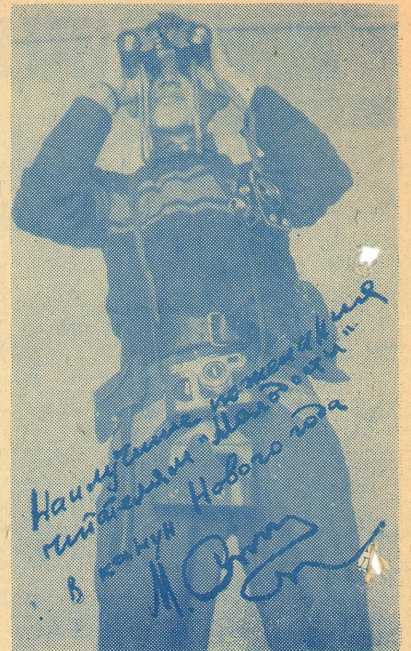 Наилучшие пожелания
читателям „Маладосци“
в канун Нового года
М.